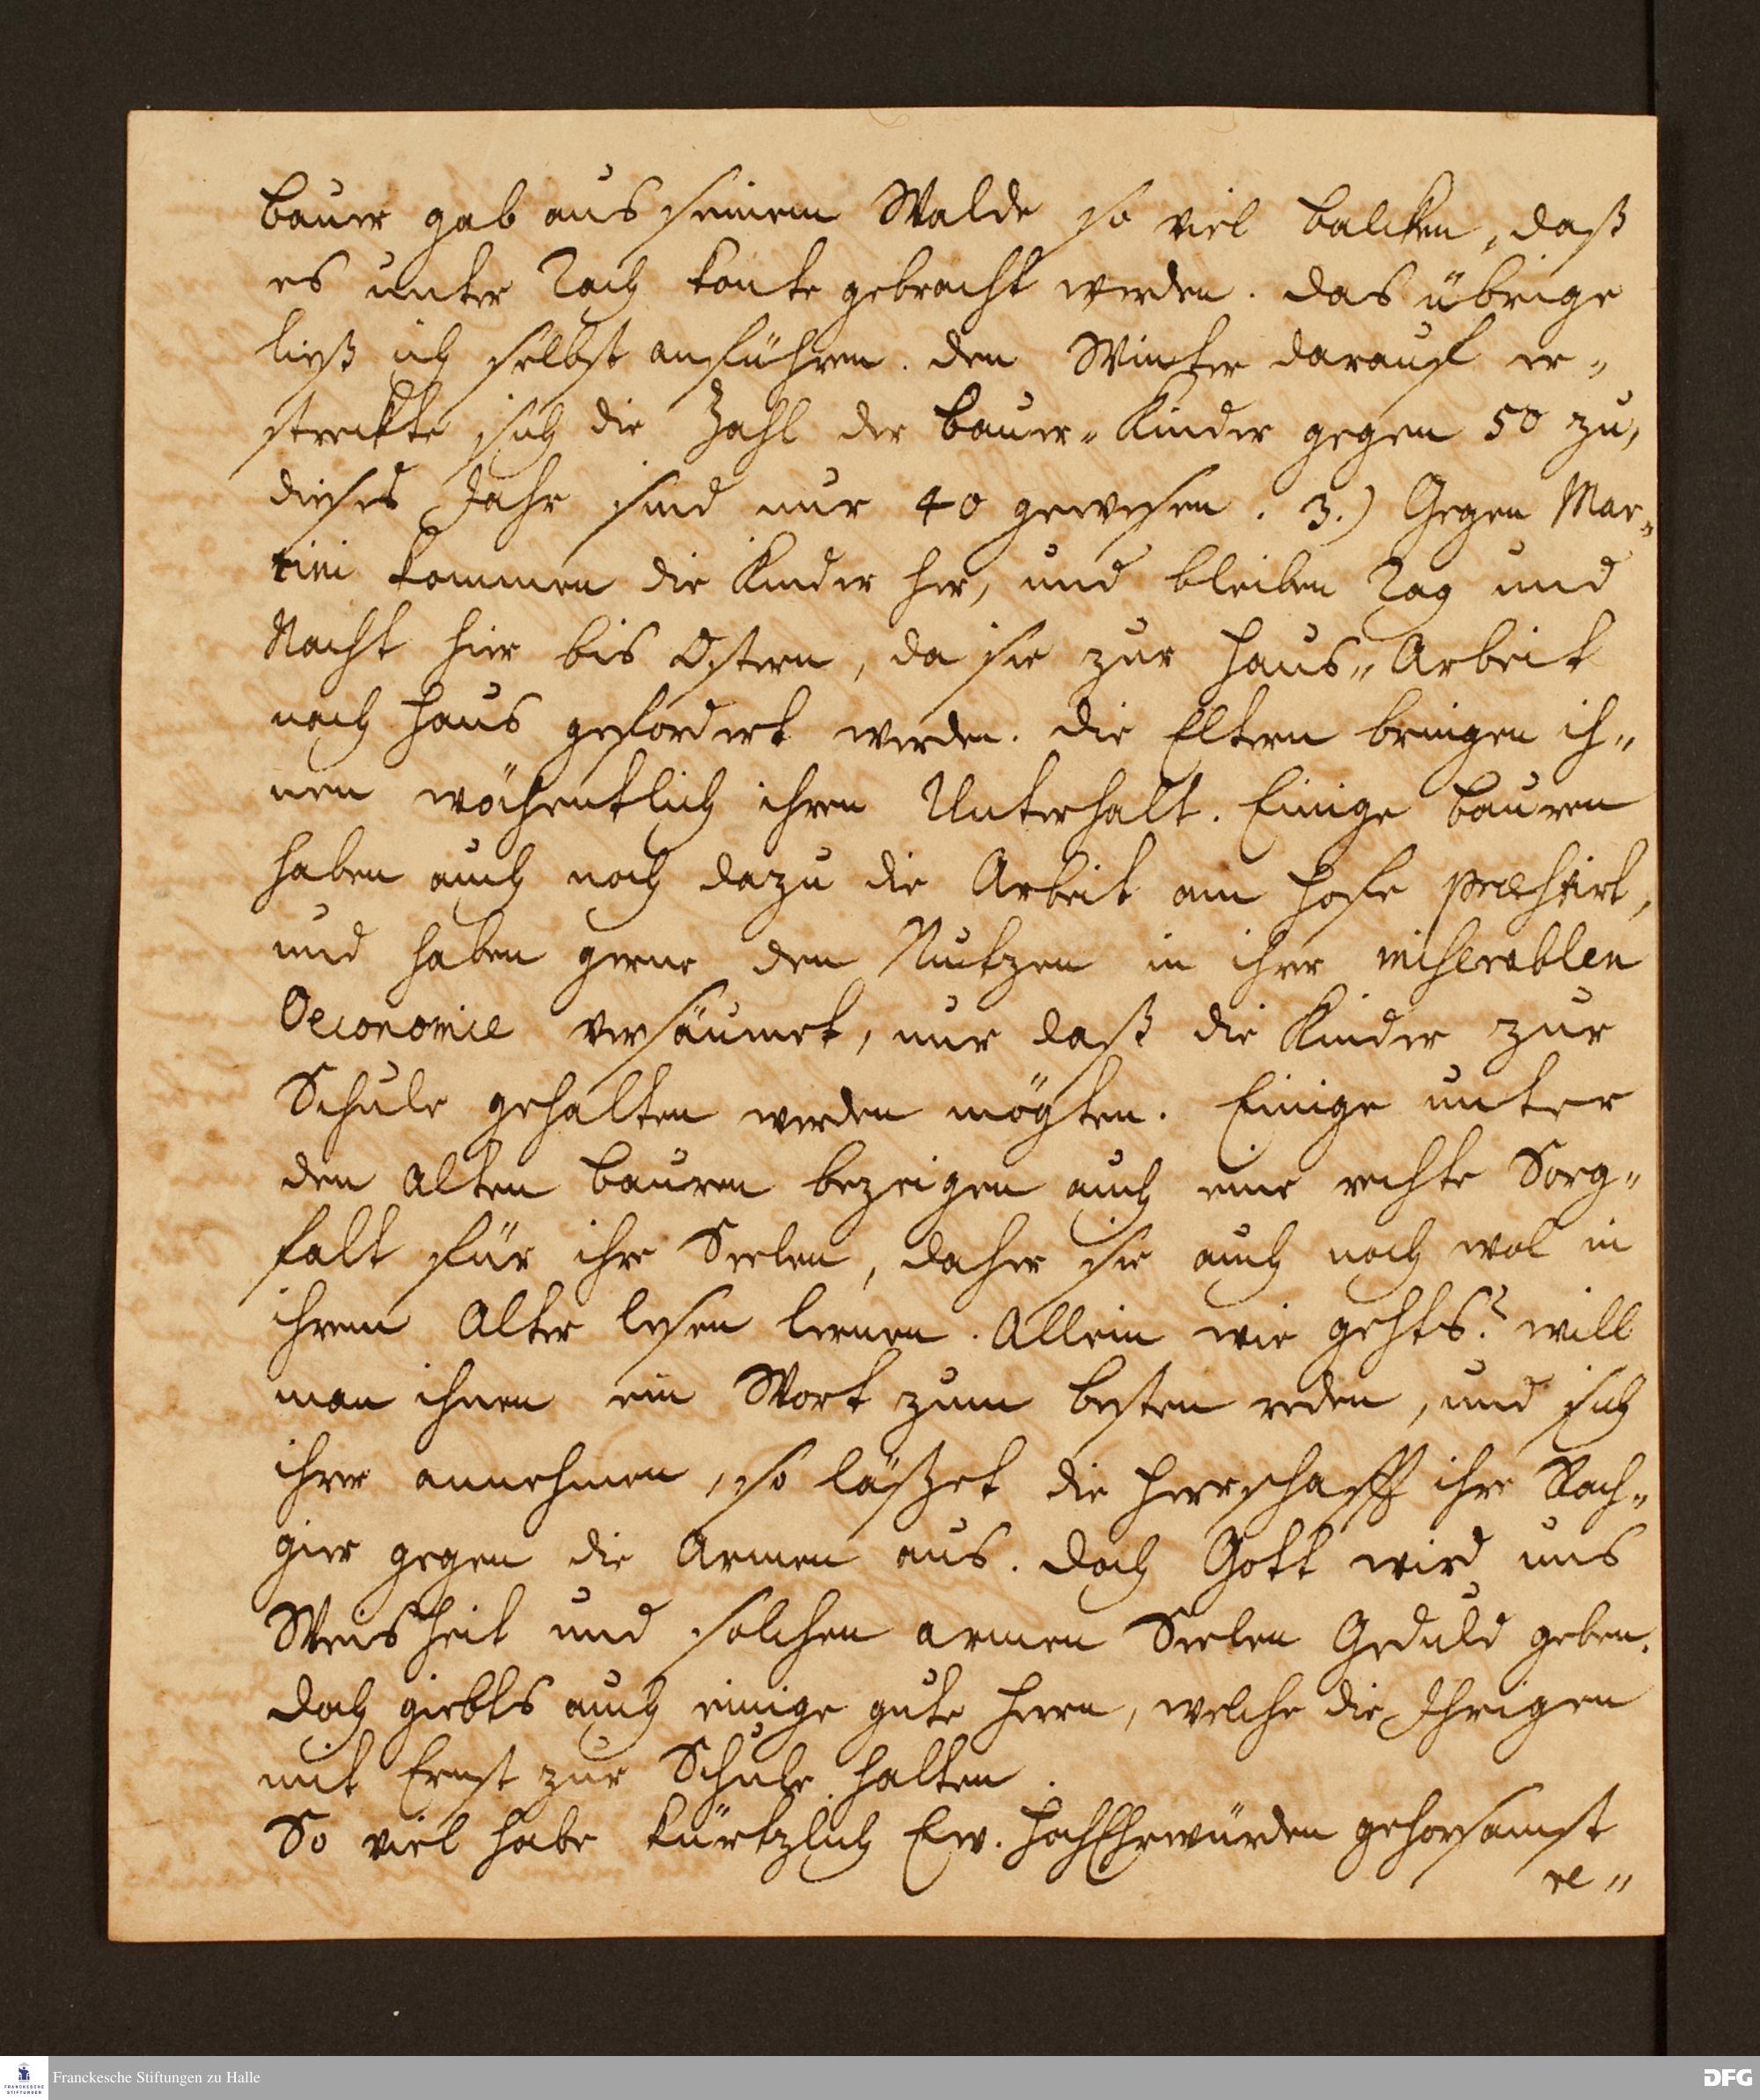 Bauer gab aus seinem Walde so viel Balcken, daß
es unter Dach konte gebracht werden. Das übrige
ließ ich selbst anführen. Den Winter darauf er-
streckte sich die Zahl der Bauer-Kinder gegen 50 zu,
dieses Jahr sind nur 40 gewesen. 3.) Gegen Mar-
tini kommen die Kinder her, und bleiben Tag und
Nacht hier bis Ostern, da sie zur Haus-Arbeit
nach Haus gefordert werden. Die Eltern bringen ih-
nen wöchentlich ihren Unterhalt. Einige Bauren
haben auch noch dazu die Arbeit am Hofe præstirt,
und haben gerne den Nutzen in ihrer miserablen
Oeconomie versäumet, nur daß die Kinder zur
Schule gehalten werden mögten. Einige unter
den Alten Bauren bezeigen auch eine rechte Sorg-
falt für ihre Seelen, daher sie auch noch wol in
ihrem Alter lesen lernen. Allein wie gehts? will
man ihnen ein Wort zum besten reden, und sich
ihrer annehmen, so läßzet die Herrschafft ihre Rach-
gier gegen die Armen aus. Doch Gott wird uns
Weisheit und solchen armen Seelen Geduld geben.
Doch giebts auch einige gute Herrn, welche die Ihrigen
mit Ernst zur Schule halten.
So viel habe kürtzlich Ew. HochEhrwürden gehorsamst
re-
Franckesche Stiftungen zu Halle
FRANCKESCHE STIFTUNGEN
DFG